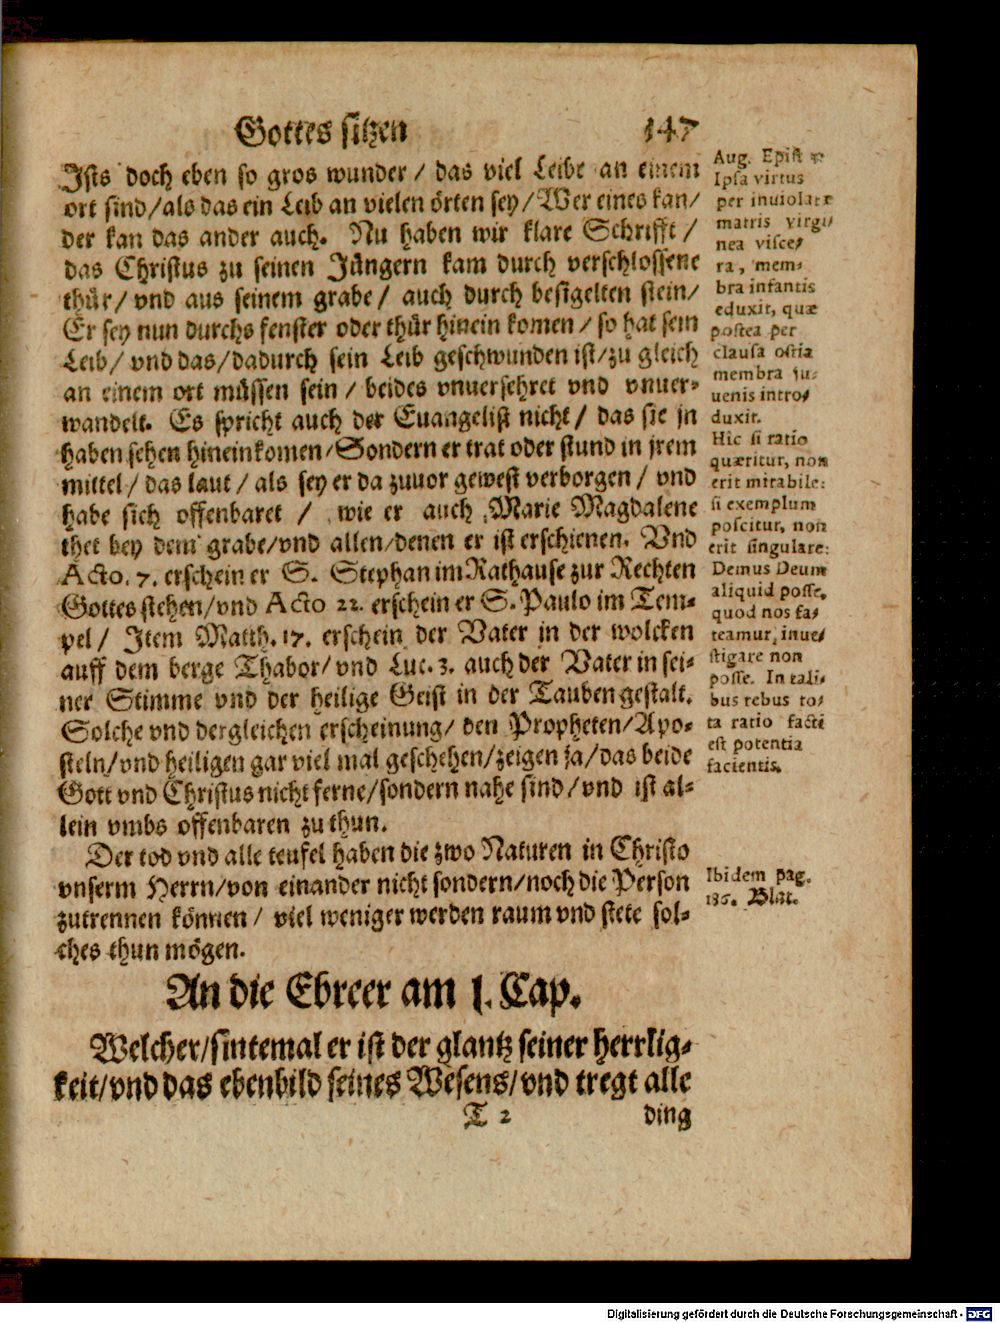 Gottes sitzen 147
Ists doch eben so gros wunder / das viel Leibe an einem
ort sind/als das ein Leib an vielen örten sey/Wer eines kan/
der kan das ander auch. Nu haben wir klare Schrifft /
das Christus zu seinen Jüngern kam durch verschlossene
thür/ vnd aus seinem grabe/ auch durch besigelten stein/
Er sey nun durchs fenster oder thür hinein komen/so hat sein
Leib/ vnd das/dadurch sein Leib geschwunden ist/zu gleich
an einem ort müssen sein / beides vnuersehret vnd vnuer-
wandelt. Es spricht auch der Euangelist nicht/ das sie jn
haben sehen hineinkomen/Sondern er trat oder stund in jrem
mittel/das laut/ als sey er da zuuor gewest verborgen/ vnd
habe sich offenbaret / wie er auch Marie Magdalene
thet bey dem grabe/vnd allen/denen er ist erschienen. Vnd
Acto. 7. erschein er S. Stephan im Rathause zur Rechten
Gottes stehen/vnd Acto 22. erschein er S. Paulo im Tem-
pel/ Item Matth. 17. erschein der Vater in der wolcken
auff dem berge Thabor/vnd Luc. 3. auch der Vater in sei-
ner Stimme vnd der heilige Geist in der Tauben gestalt.
Solche vnd dergleichen erscheinung/ den Propheten/Apo-
steln/vnd heiligen gar viel mal geschehen/zeigen ja/das beide
Gott vnd Christus nicht ferne/sondern nahe sind/vnd ist al-
lein vmbs offenbaren zu thun.
Der tod vnd alle teufel haben die zwo Naturen in Christo
vnserm Herrn/von einander nicht sondern/noch die Person
zutrennen können/ viel weniger werden raum vnd stete sol-
ches thun mögen.
An die Ebreer am 1. Cap.
Welcher/sintemal er ist der glantz seiner herrlig-
keit/vnd das ebenbild seines Wesens/vnd tregt alle
T 2 ding
Aug. Epist
Ipsa virtus
per inuiolatæ
matris virgi-
nea visce-
ra, mem-
bra infantis
eduxit, quæ
postea per
clausa ostia
membra iu-
uenis intro-
duxit.
Hic si ratio
quæritur, non
erit mirabile:
si exemplum
poscitur, non
erit singulare:
Demus Deum
aliquid posse,
quod nos fa-
teamur, inue-
stigare non
posse. In tali-
bus rebus to-
ta ratio facti
est potentia
facientis.
Ibidem pag.
186. Blat.
Digitalisierung gefördert durch die Deutsche Forschungsgemeinschaft - DFG